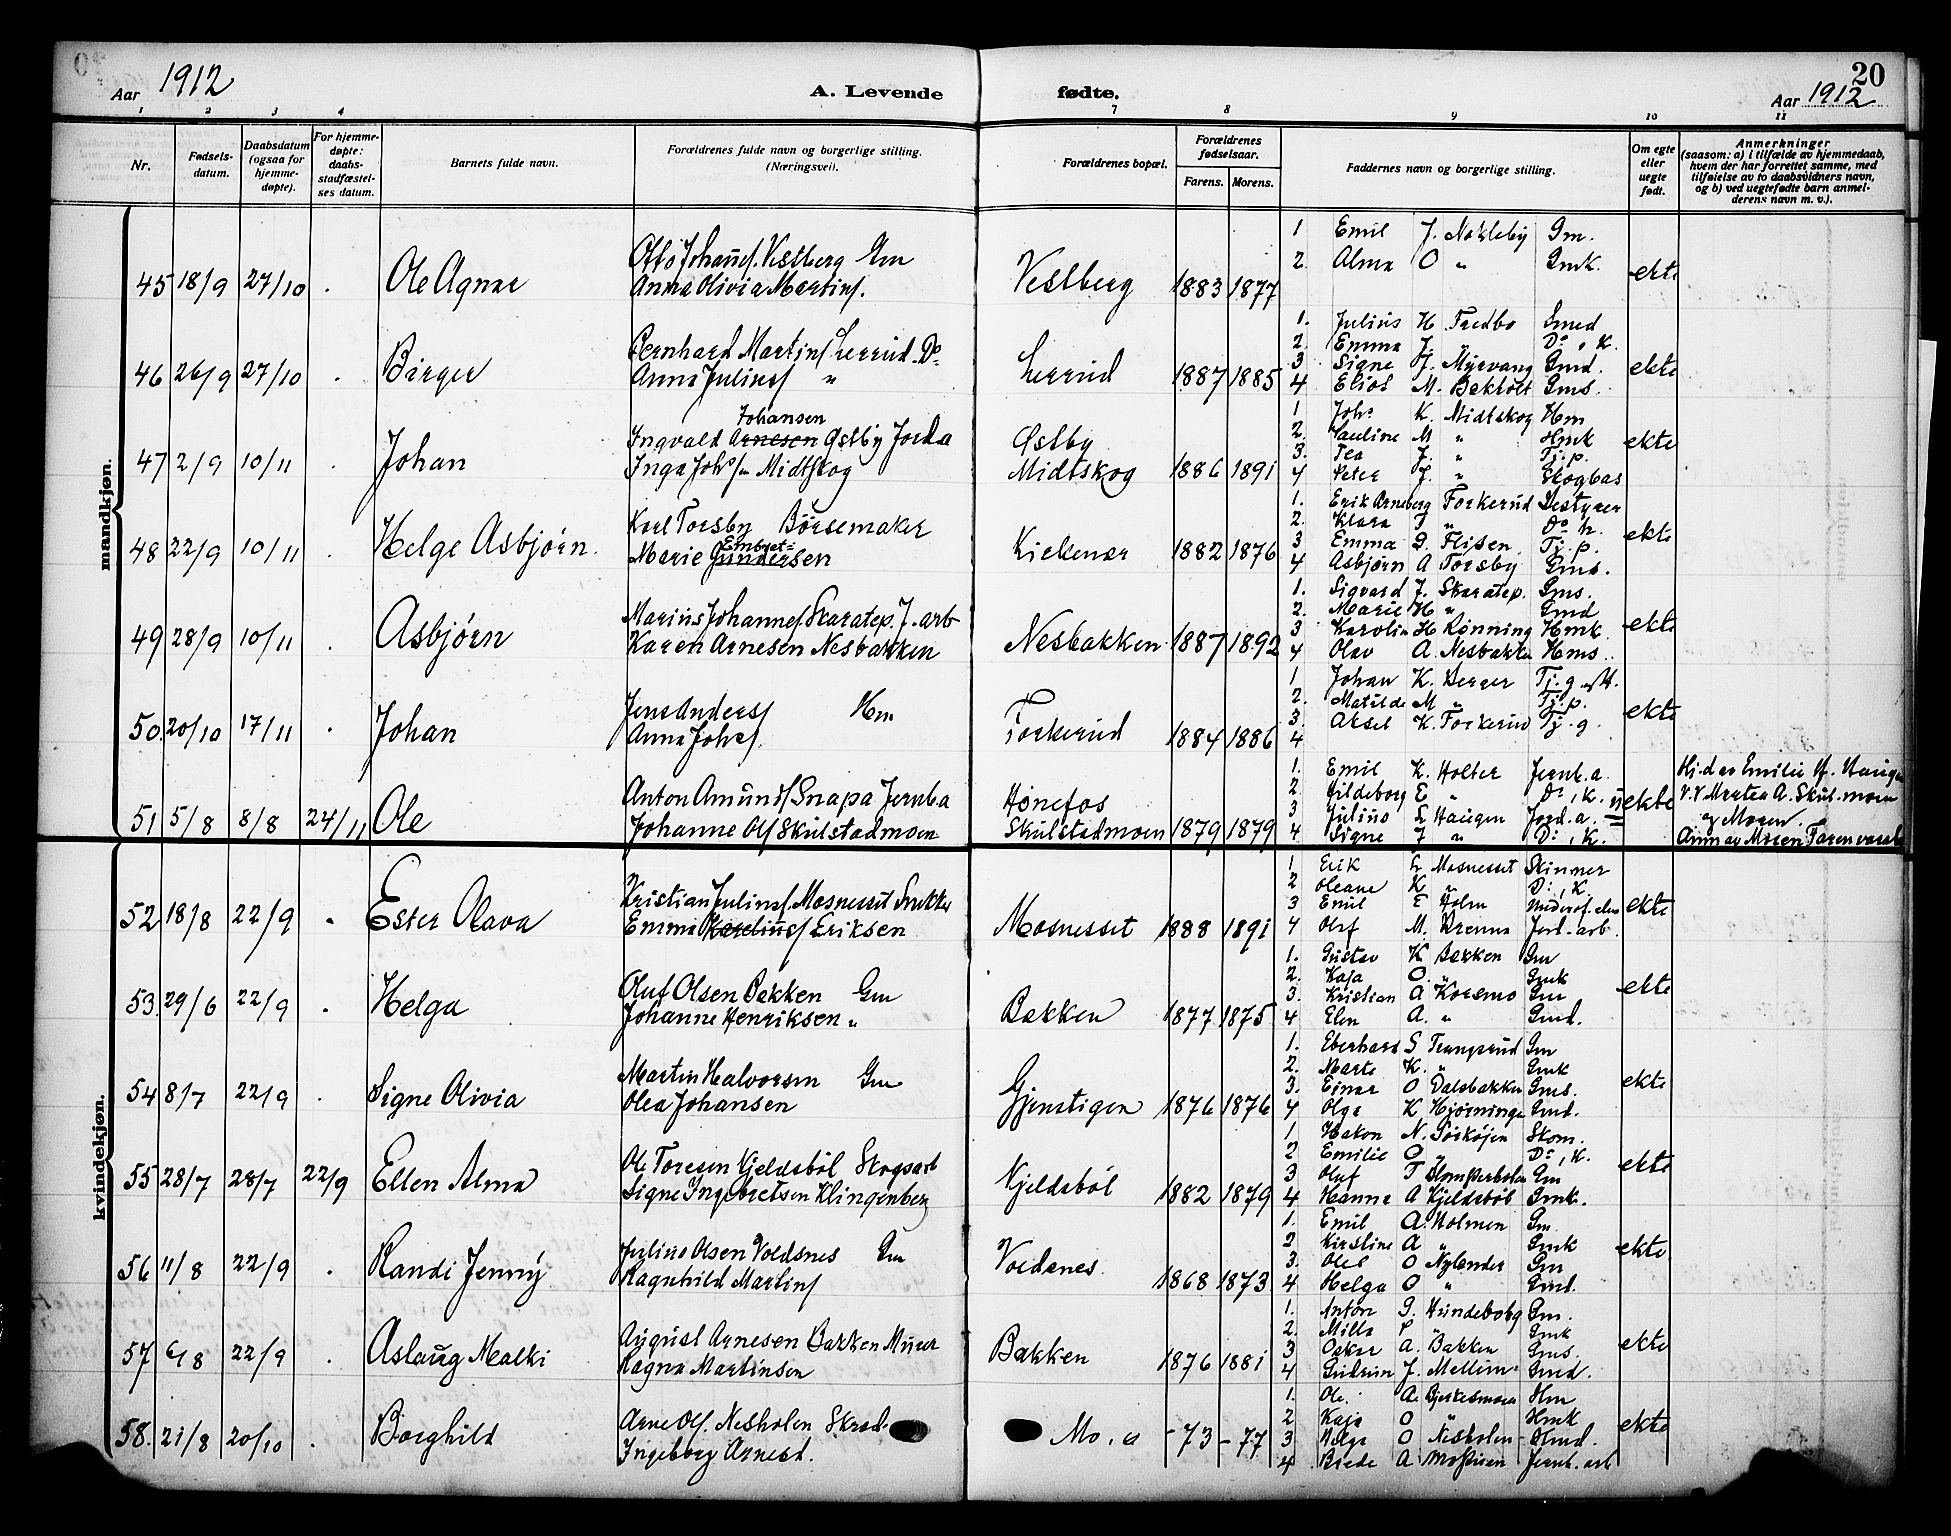 20
Aar 1912 A. Levende fødte. Aar 1912
1 2 3 4 7 8 9 10 11
Nr.
Fødsels-
datum.
Daabsdatum
(ogsaa for
hjemme-
døpte).
For hjemme-
døpte:
daabs-
stadfæstel-
ses datum.
Barnets fulde navn.
Forældrenes fulde navn og borgerlige stilling.
(Næringsvei).
Forældrenes bopæl.
Forældrenes
fødselsaar.
Farens. Morens.
Faddernes navn og borgerlige stilling.
Om egte
eller
uegte
født.
Anmerkninger
(saasom: a) i tilfælde av hjemmedaab,
hvem der har forrettet samme, med
tilføielse av to daabsvidners navn,
og b) ved uegtefødte barn anmel-
derens navn m. v.).
mandkjøn.
45 18/9 27/10 . Ole Agnar
Otto Johannes. Vestberg Gm
Anna Olivia Martins.
Vestberg 1883 1877
1 Emil J. Nokleby Gm.
2. Alma O " Gmk.
ekte
46 26/9 27/10 . Birger
Bernhard Martins Lerrud Do
Anna Julius "
Lerrud 1887 1885
1. Julius H. Fredbo Gmd
2. Emma J. " Do, K.
3 Signe J. Myrvang Gmd.
4 M. Gms.
ekte
47 2/9 10/11 . Johan
Johansen
Ingvald Arnesen Østby Jord.a
Inga Johs Midtskog
Østby
Midtskog 1886 1891
1 Johs K. Midtskog Hm
2. Pauline M " Hmk
3. Tea J. " Tj.p.
4 Peter J. " Skogbas
ekte
48 22/9 10/11 . Helge Asbjørn.
Karl Torsby Børsemaker
Embret=
Marie Gundersen
Kirkenær 1882 1876
1. Erik Arneberg Forkerud Bestyrer
2. Klara J " Do K.
3 Emma G. Flisen Tj. p.
4 Asbjørn A Torsby Gms.
ekte
49 28/9 10/11 . Asbjørn
Marius Johannes. Skaratep. J. arb
Karen Arnesen Nesbakken
Nesbakken 1887 1892
1. Sigvard J. Skaratep. Gms.
2. Marie H " Gmd
3 Karolin H Rønning Hmk.
4 Olav A. Nesbakken Hms.
ekte
50. 20/10 17/11 . Johan
Jens Anders Hm
Anna Johs
Forkerud 1884 1886
1 Johan K. Berger Tj. g.
2. Matilde M " Tj.p.
3. Aksel K. Forkerud Tj. g.
4
ekte
51 5/8 8/8 24/11 Ole
Anton Amunds Snapa Jernb.a
Johanne Ols Skulstadmoen
Hønefos
Skulstadmoen 1879 1879
1. Emil K. Holter Jernb.a.
2. Hildeborg E " Do, K.
3 Julius L Haugen Jord.a.
4 Signe J " Do, K.
uekte
Hj.d av Emilie H. Haugen
V.V Martea A. Skul.moen
og Moren.
Anm av Moren
kvindekjøn.
52 18/8 22/9 . Ester Olava
Kristian Julius Mosnesset Snekker
Emma Karelius Eriksen
Mosnesset 1888 1891
1 Erik L Mosnesset Skinner
2 Oleane K " Do, K.
3 Emil E Holm Underof.elev
4 Olaf M. Brenna Jord.arb.
ekte
53. 29/6 22/9 . Helga
Oluf Olsen Bakken Gm
Johanne Henriksen "
Bakken 1877 1875
1. Gustav K Bakken Gm
2. Kaja O. " Gmk
3. Kristian A Korsmo Gm
4 Elen A. " Gmd.
ekte
54 8/7 22/9 . Signe Olivia
Martin Halvorsen Gm
Olea Johansen
Gjenstigen 1876 1876
1. Eberhard S Trangsrud Gm
2. Marte K. " Gmk
3. Einar O Dalsbakken Gms.
4 Olga K Hjørninge Gmd.
ekte
55 28/7 28/7 22/9 Ellen Alma
Ole Toresen Kjeldsbøl Skogsarb
Signe Ingebretsen Klingenberg
Kjeldsbøl 1882 1879
1 Hakon N. Sørkøjen Skom.
2 Emilie O " Do, K.
3 Oluf T Gm
4 Hanna A Kjeldsbøl Gmk.
ekte
56 11/8 22/9 . Randi Jenny
Julius Olsen Voldsnes Gm
Ragnhild Martins
Voldsnes. 1868 1873
1. Emil A. Holmen Gm.
2 Kirstine A " Gmk
3. Oles O Nylander Gm
4 Helga O " Gmd.
ekte
57 6/8 22/9 . Aslaug Malki
August Arnesen Bakken Murer
Ragna Martinsen
Bakken 1876 1881
1. Anton G. Hundeborg Gm.
2. Milla P " Gmk
3 Oskar A. Bakken Gms.
4 Gudrun J. Mellum Gmd.
ekte
58. 21/8 20/10 . Borghild
Arne Ols. Nesholen Skred
Ingeborg Arnesd.
Mo. a -73 -77
1. Ole. A. Bjerkesmoen Hm
2 Kaja O " Hmk
3 Helga O Nesholen Hmd.
4 Brede A Jernb. arb
ekte